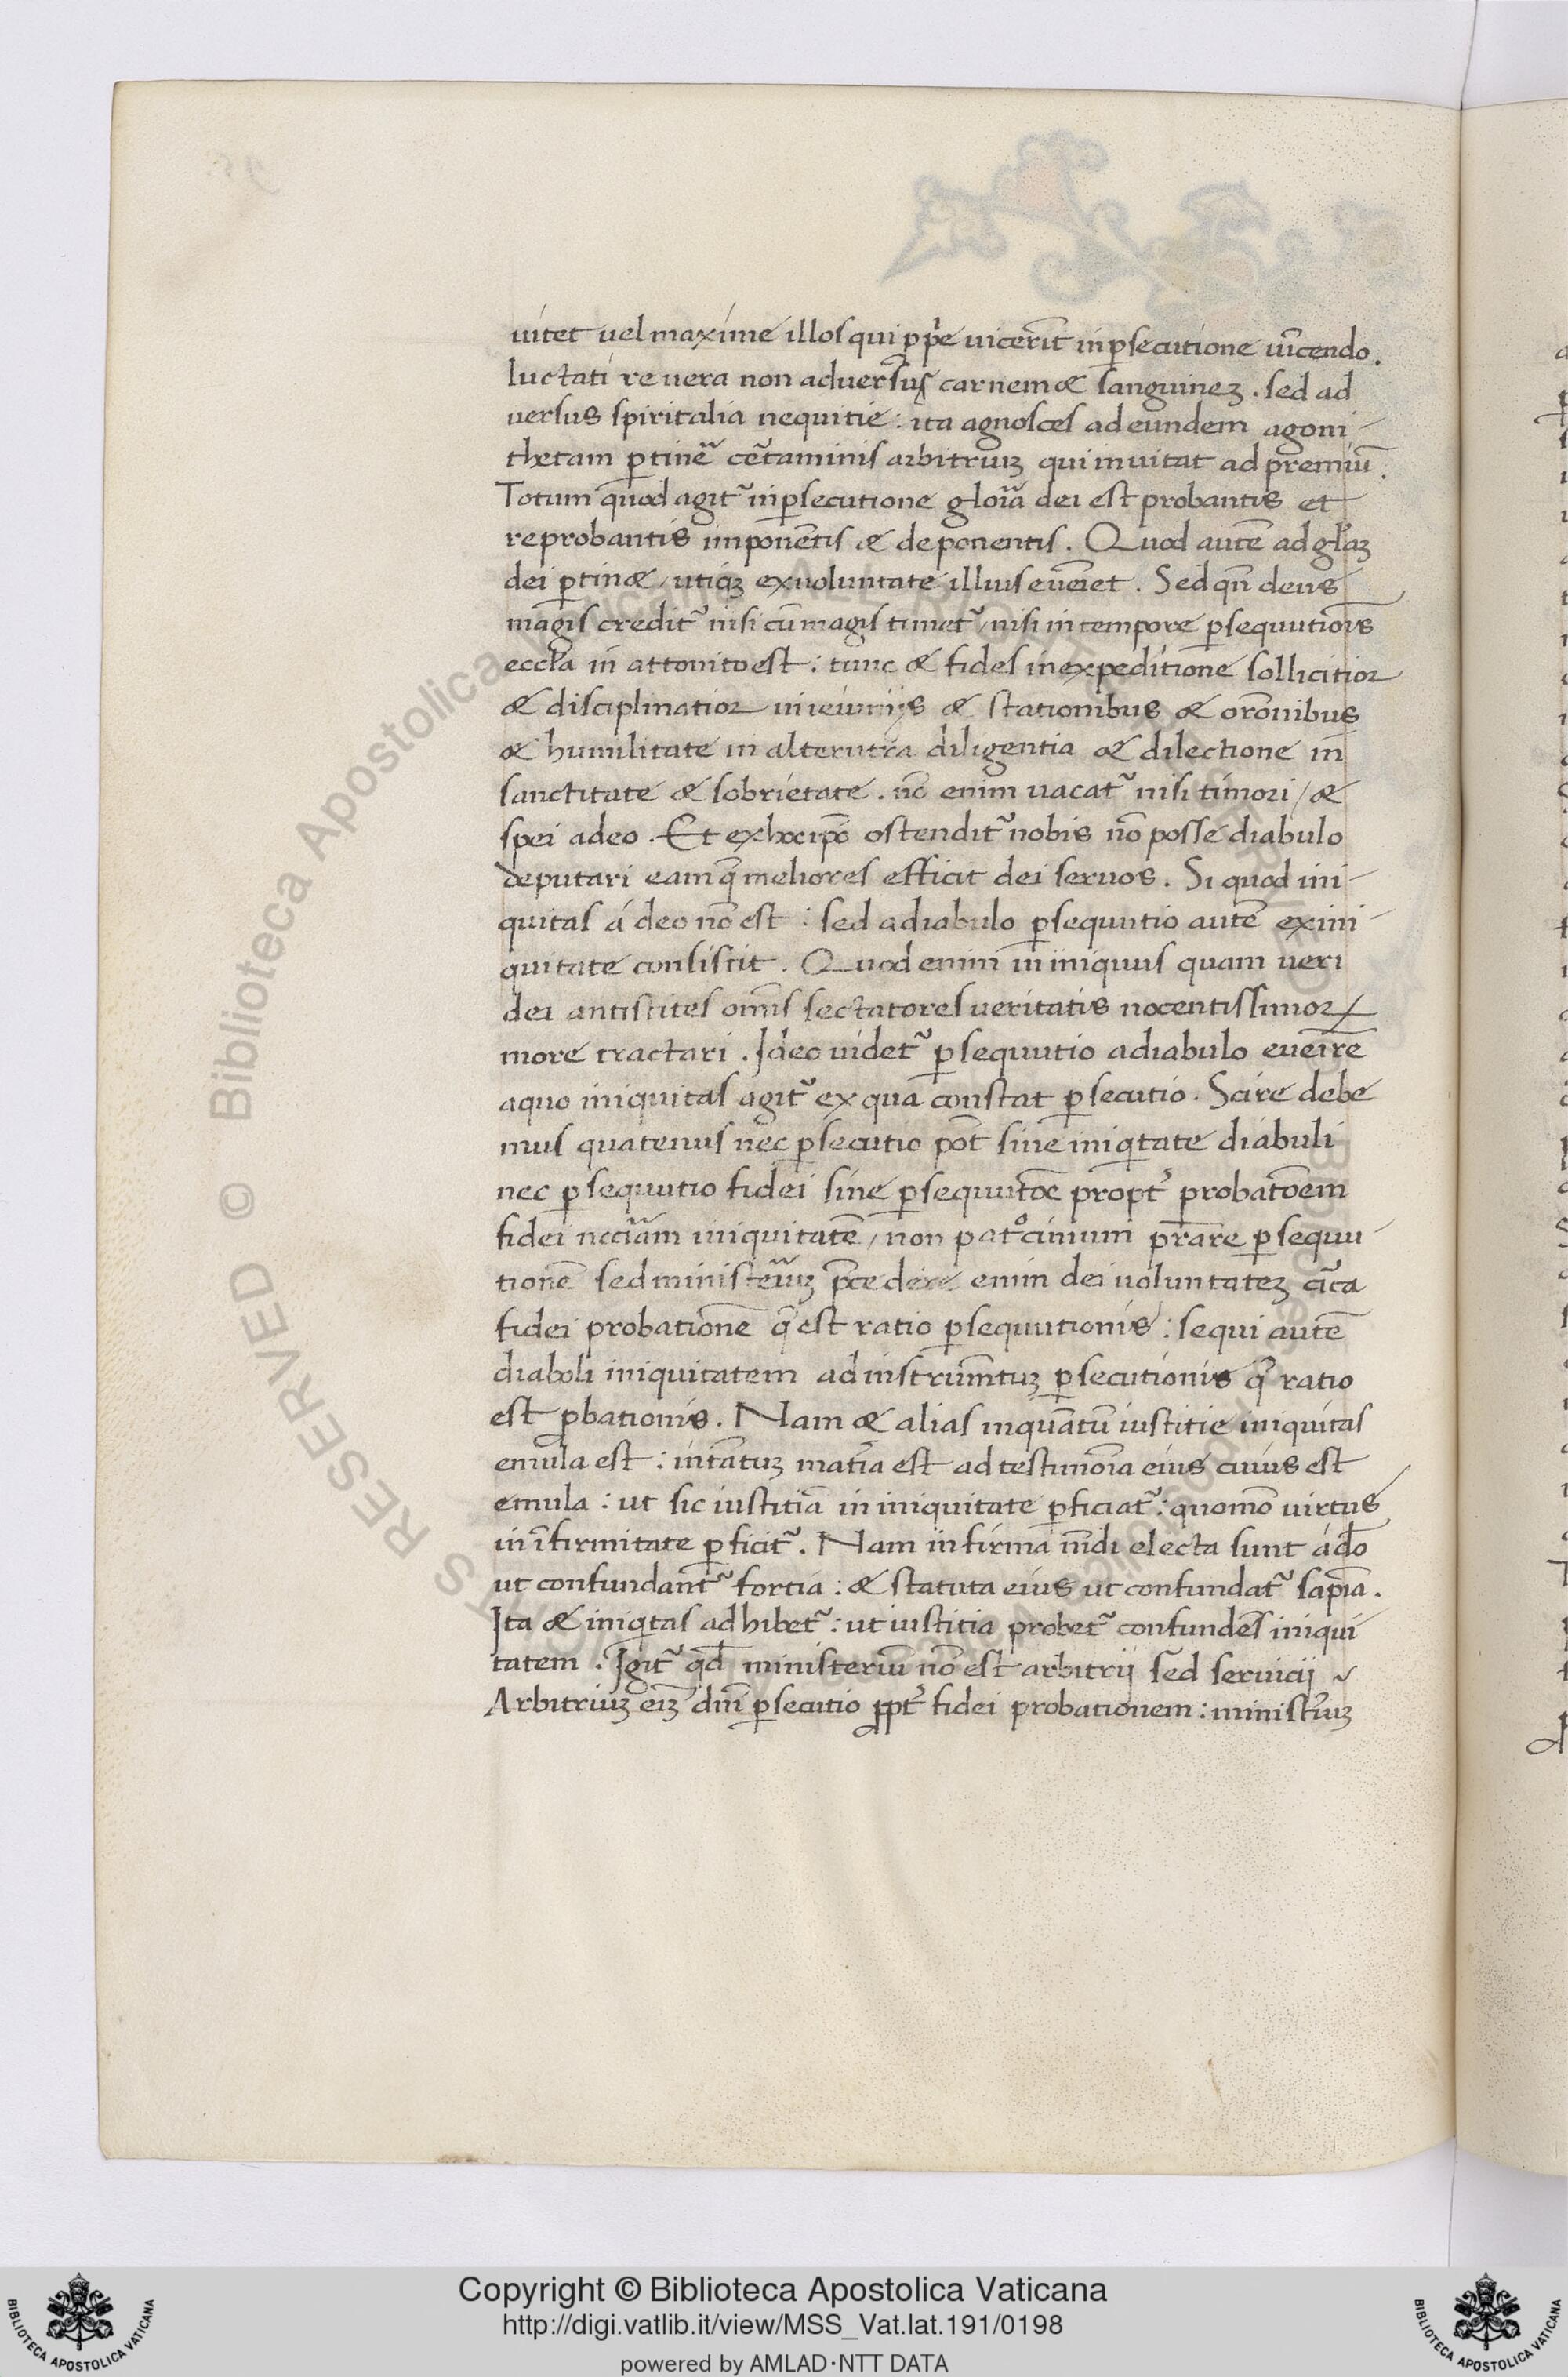 uitet uel maxime illos qui ꝓpͥe uicer̄it in ꝑsecutione uīcendo.
luctati re uera non aduersus carnem & sanguineꝫ. sed ad
uersus spiritalia nequitie: ita agnosces ad eundem agoni-
thetam ꝑtiner̄ cer̄taminis arbitriuꝫ qui inuitat ad premiū.
Totum quod agit᷑ in ꝑsecutione gloīa dei est probantis et
reprobantis imponentis & deponentis. Quod autē ad gl̄aꝫ
dei ꝑtin&, utiqꝫ ex uoluntate illius eueīet. Sed qn̄ deus
magis credit᷑ nisi cū magis timet᷑, nisi in tempore ꝑsequutiōis
eccl̄a in attonito est: tunc & fides in expeditione sollicitior
& disciplinatior in ieiunijs & stationibus & orōnibus
& humilitate in alterutra diligentia & dilectione in
sanctitate & sobrietate. nō enim uacat᷑ nisi timori / &
spei adeo. Et ex hoc ip̄o ostendit᷑ nobis nō posse diabulo
deputari eam q̄ meliores efficit dei seruos. Si quod ini-
quitas á deo nō est: sed a diabulo ꝑsequutio autē ex ini-
quitate consistit. Quod enim in iniquius quam ueri
dei antistites om̄is sectatores ueritatis nocentissimoꝝ
more tractari. Ideo uidet᷑ ꝑsequutio a diabulo eueīre
a quo iniquitas agit᷑ ex qua constat ꝑsecutio. Scire debe
mus quatenus nec ꝑsecutio pōt sine iniqͥtate diabuli
nec ꝑsequutio fidei sine ꝑsequutōe propt᷑ probatōem
fidei neccīam iniquitatē, non patͦcinium pr̄are ꝑsequu-
tionē sed ministeriuꝫ p̄cedere enim dei uoluntateꝫ cīca
fidei probationē q̄ est ratio ꝑsequutionis: sequi autē
diaboli iniquitatem ad instrum̄tuꝫ ꝑsecutionis q̄ ratio
est ꝓbationis. Nam & alias inquātū iustitie iniquitas
emula est: intātuꝫ mat̄ia est ad testimoīa eius cuius est
emula: ut sic iustitia in iniquitate ꝑficiat᷑: quomō uirtus
in īfirmitate ꝑficit᷑. Nam infirma mūdi electa sunt á dō
ut confundant᷑ fortia: & statuta eius ut confundat᷑ sapīa.
Ita & iniqͥtas adhibet᷑: ut iustitia probet᷑ confundēs iniqui
tatem. Igit᷑ qd̄ ministeriū nō est arbitrij sed seruicij
Arbitriuꝫ eīꝫ dn̄i ꝑsecutio ꝓpt᷑ fidei probationem: minist᷑iuꝫ
Copyright © Biblioteca Apostolica Vaticana
http://digi.vatlib.it/view/MSS_Vat.lat.191/0198
powered by AMLAD·NTT DATA